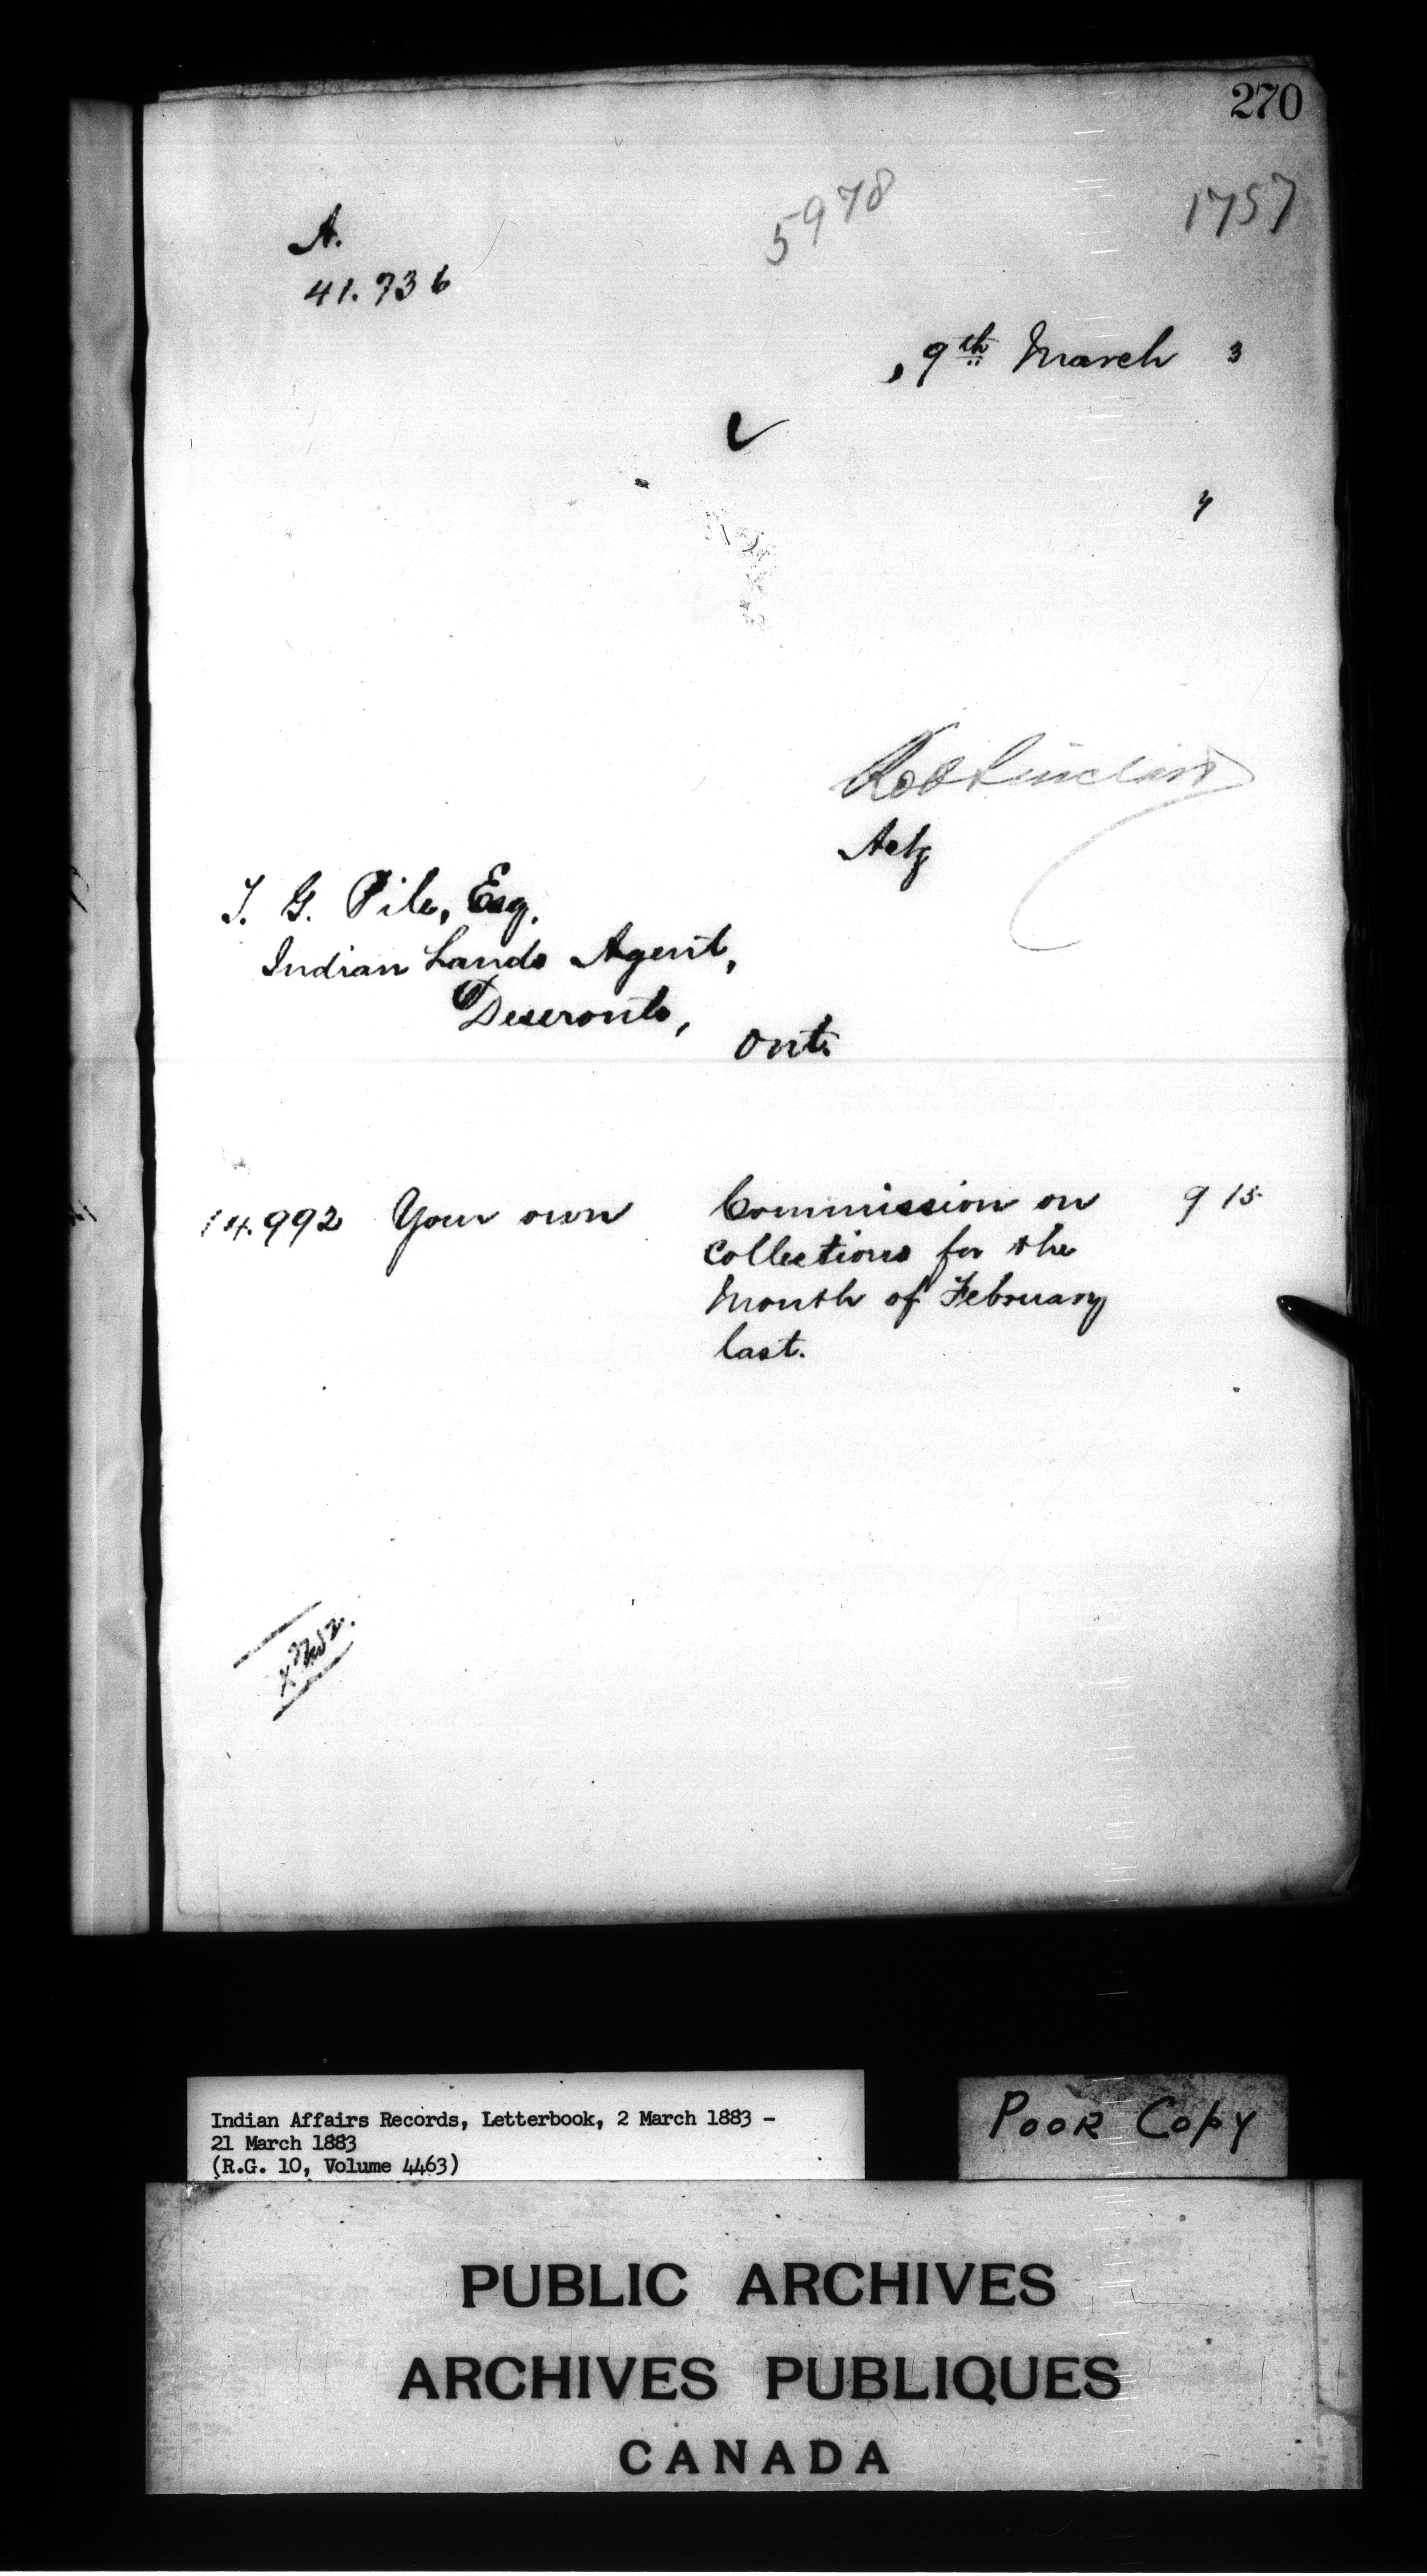 270
5978
1757
A.
41.736
9th March 3
y
Robt Sinclair
Actg
T. G. Pile, Esq.
Indian Lands Agent,
Deseronto,
Ont.
14.992 Your own Commission on 9 15
collections for the
Month of February
last.
Indian Affairs Records, Letterbook, 2 March 1883 -
21 March 1883
(R.G. 10, Volume 4463)
POOR COPY
PUBLIC ARCHIVES
ARCHIVES PUBLIQUES
CANADA